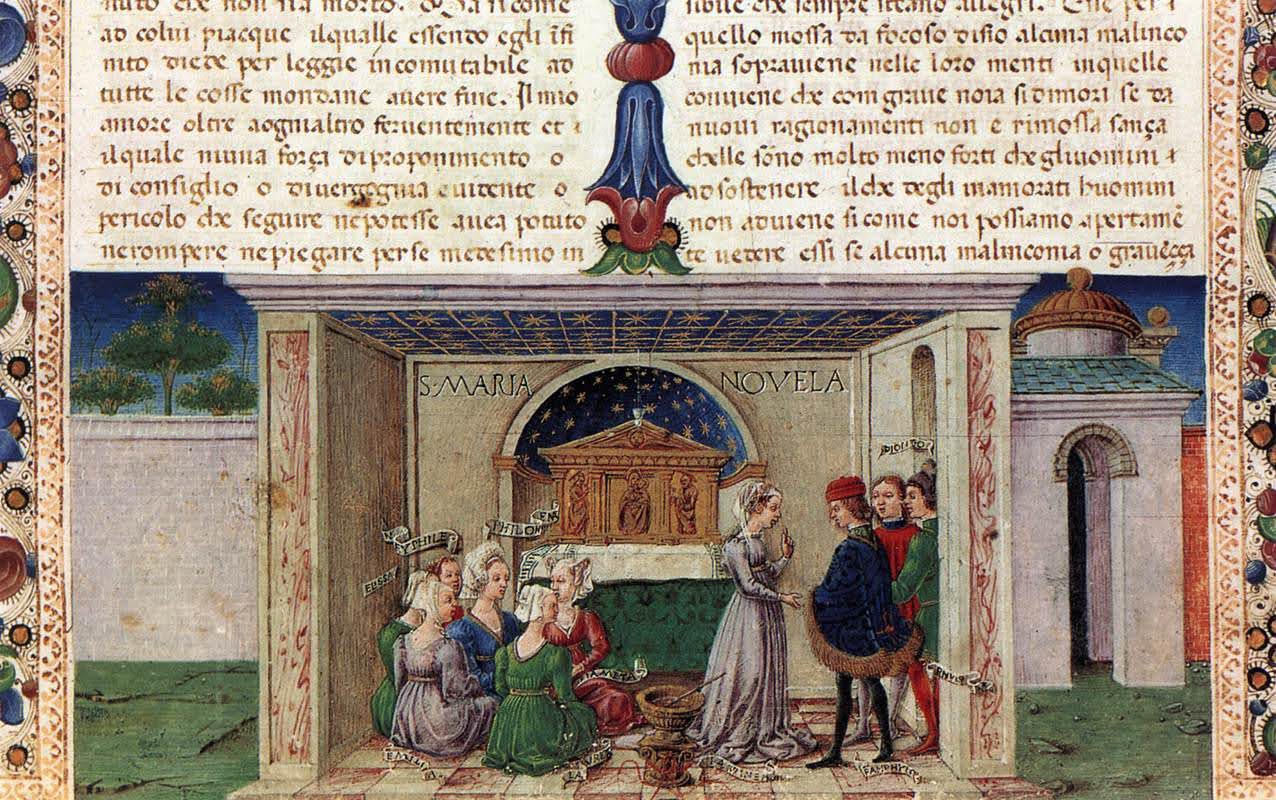 nito che non sia morto.
ad colui piacque ilqualle essendo egli ifi
nito diede per leggie incomutabile ad
tutte le cosse mondane avere fine. Il mio
amore oltre aogni altro feruentemente et
ilquale niuna força di proponimento o
di consiglio o di uergogna euidente o
pericolo che seguire ne potesse auea potuto
ne rompere ne piegare per se medesimo in
sibile che sempre steano allegri.
quello mossa da focoso disio alcuna malinco
nia soprauiene nelle loro menti inquelle
conuiene che con graue noia si dimori se da
nuoui ragionamenti non e rimossa sança
chelle sono molto meno forti che gliuomini
ad sostenere il che degli inamorati huomini
non aduiene si come noi possiamo apertamē
te uedere essi se alcuna malinconia o graueçça
S·MARIA NOVELA
PHILOM
ELISSA
EMILIA
LAURE
TA
FIAMETA
PAMPHILO